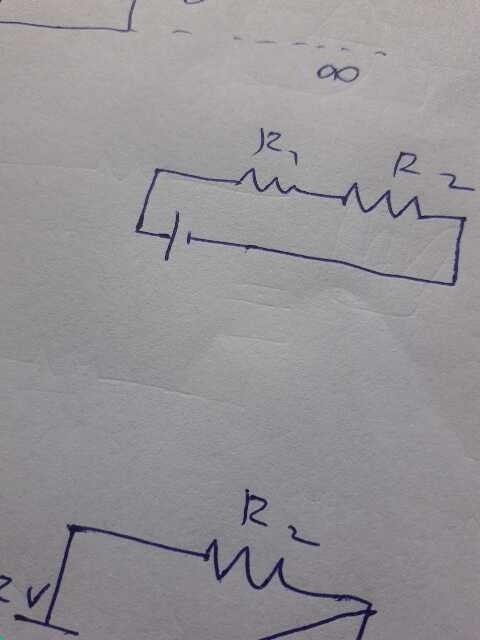 ∞
R1 R2
R2
2V